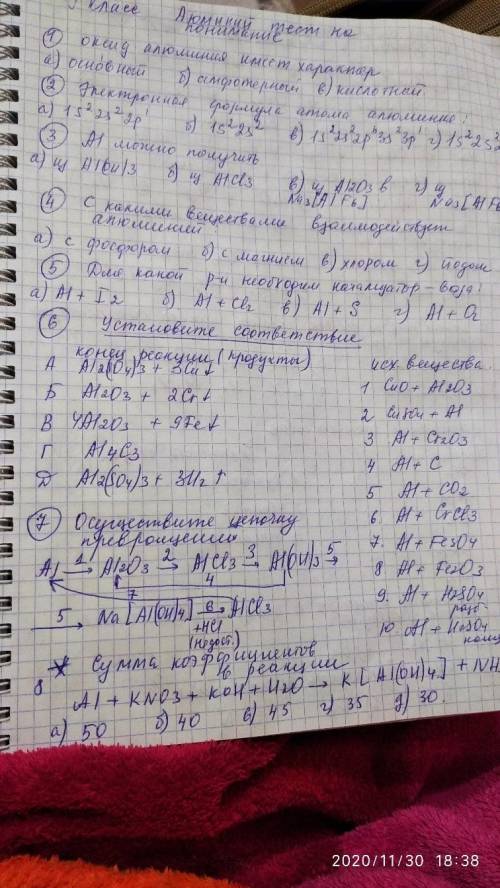 9 класс Алюминий тест на
понимание
1 оксид алюминия имеет характер
а) основный б) амфотерный в) кислотный
2 Электронная формула атома алюминия:
а) 1s² 2s² 2p¹ б) 1s² 2s² в) 1s² 2s² 2p⁶ 3s² 3p¹ г) 1s² 2s2
3 Al можно получить
а) щ Al(OH)3 б) щ AlCl3 в) щ Al2O3 в Na3[AlF6] г) щ Na3[AlF6
4 С какими веществами взаимодействует
алюминий
а) с фосфором б) с магнием в) хлором г) йодом
5 Для какой р-и необходим катализатор - вода:
а) Al + I2 б) Al + Cl2 в) Al + S г) Al + O2
6 Установите соответствие
конец реакции (продукты) исх. вещества
А Al2(SO4)3 + 3Cu↓ 1 CuO + Al2O3
Б Al2O3 + 2Cr↓ 2 CuSO4 + Al
В 4Al2O3 + 9Fe↓ 3 Al + Cr2O3
Г Al4C3 4 Al + C
Д Al2(SO4)3 + 3H2↑ 5 Al + CO2
6. Al + CrCl3
7. Al + Fe3O4
8 Al + Fe2O3
9. Al + H2SO4 разб.
10. Al + H2SO4 конц
7 Осуществите цепочку
превращений
Al 1→ Al2O3 2→ AlCl3 3→ Al(OH)3 5→
4
7
5→ Na[Al(OH)4] 6→ AlCl3
+HCl
(недост.)
8 Сумма коэффициентов
в реакции
Al + KNO3 + KOH + H2O → K[Al(OH)4] + NH
а) 50 б) 40 в) 45 г) 35 д) 30.
2020/11/30 18:38